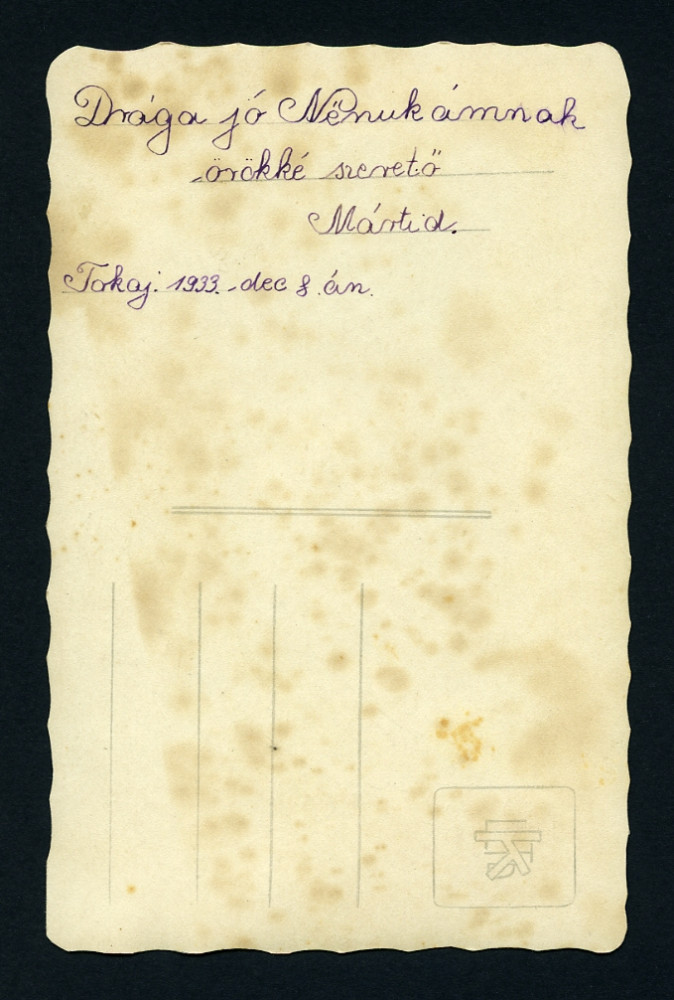 Drága jó Nénukámnak
örökké szerető
Mártid.
Tokaj. 1933.-dec 8.án.